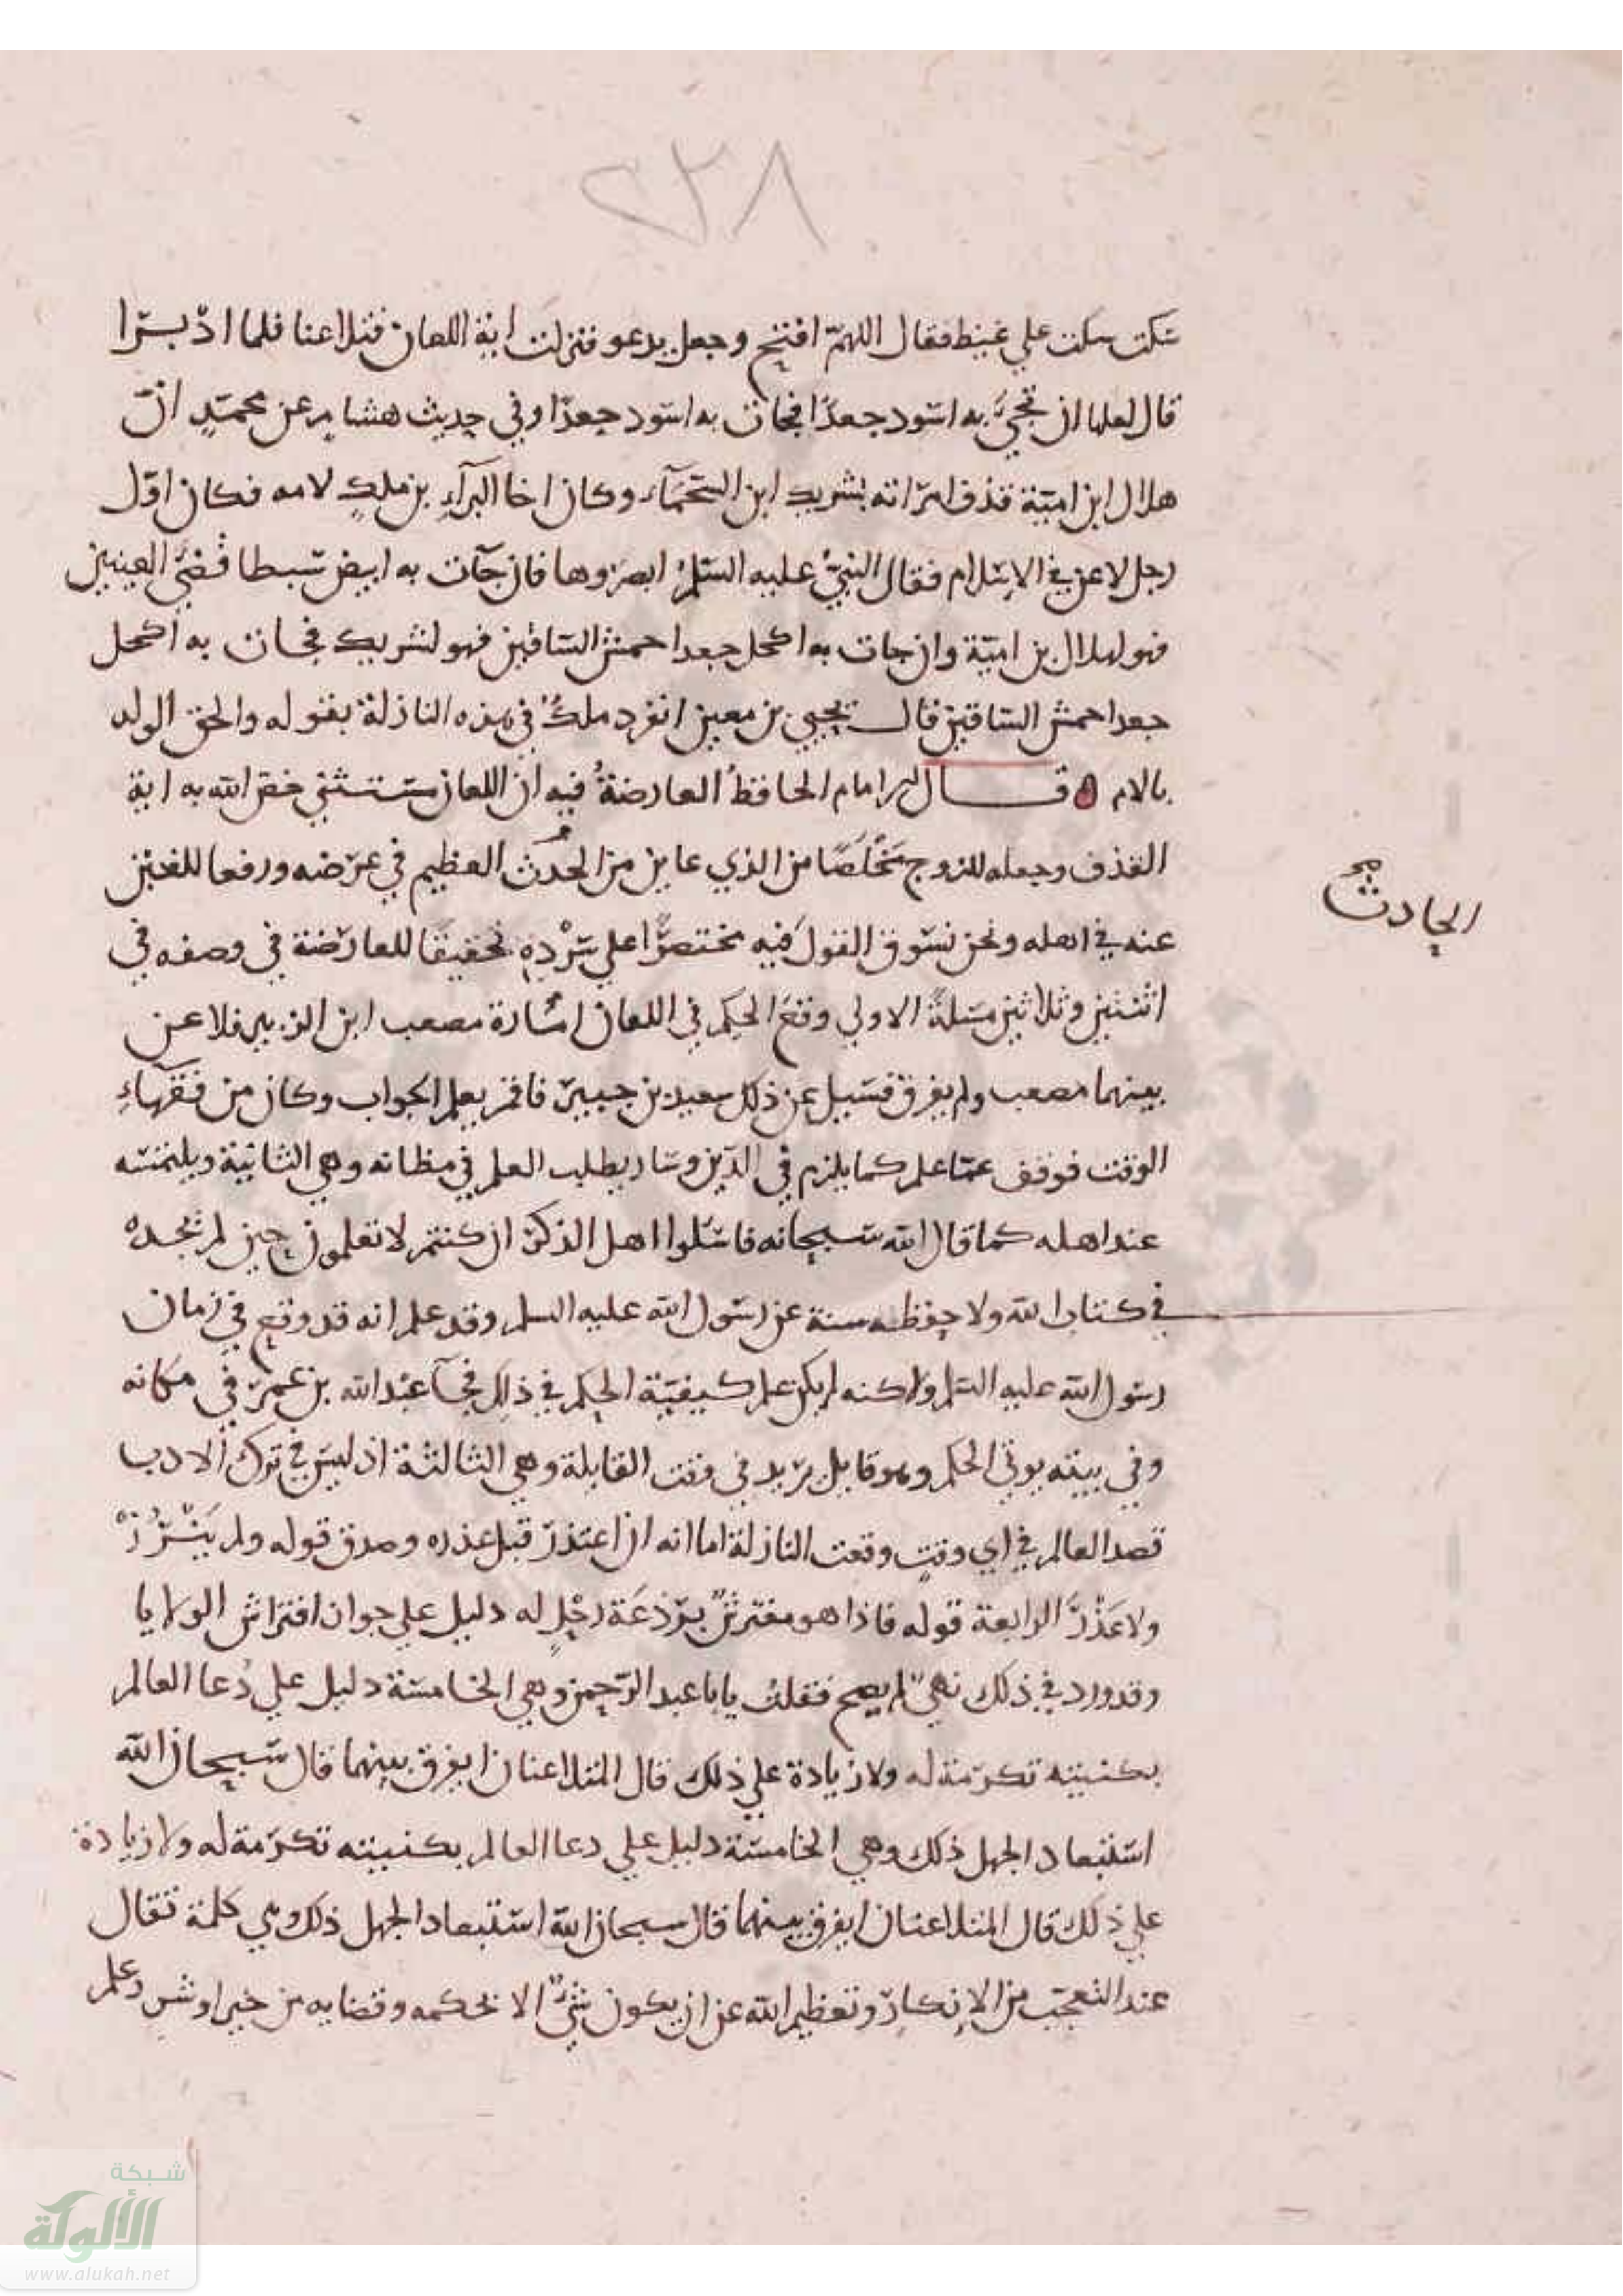 ٢٣٨
سكت سكت علي غيظ فقال اللهمّ افتح وجعل يدعو فنزلت اية اللعان فتلاعنا فلما ادْبرَا
قال لعلها ان تجيَ به اسود جعدًا فجات به اسود جعدًا وفي حديث هشام عن محمدٍ انّ
هلال ابن اميّة قذف امراته بشريك ابن السَّحمَآء وكان اخا البرآءِ بن ملكٍ لامه فكان اوّل
رجل لاعن في الاِسْلام فقال النبيُّ عليه السّلمُ ابصروها فان جآت به ابيض سَبطا قضَيَّ العينين
فهو لهلال بن اميّة وان جات به اكحل جعدا حمش السّاقين فهو لشريك فجات به اكحل
جعدا حمش السّاقين قال يحيي بن معين انفرد ملكٌ في هذه النازلة بقوله والحق الولد
بالام ه قال الامام الحافظُ العارضةُ فيه ان اللعان مستثني خصّ الله به اية
القذف وجعله للزوج مَخْلَصًا من الذي عاين من الحَدَث العظيم في عرْضه ورفعا للغبن
الحادث صح
عنه في اهله ونحن نسوق القولَ فيه مختصرًا علي سَرْدِهِ تحقيقًا للعارضة في وصفه في
اثنتين وثلاثين مسَلةً الاولي وقعَ الحكم في اللعان امَارة مصعب ابن الزبير فلاعن
بينهما مصعب ولم يفرق فسَيل عن ذلك سعيد بن جبير فلم يعلم الجواب وكان من فقهآءِ
الوقت فوقف عمّا علم كما يلزم في الدّين وسَار يطلب العلم في مظانه وهي الثانية ويلتمسَه
عند اهله كما قال الله سَبحانه فاسَلوا اهل الذكر ان كنتم لا تعلمون حين لم يجده
في كتاب الله ولا حفظه سنة عن رسَول الله عليه السلم وقد علم انه قد وقع في زمان
رسَول الله عليه السّلم ولاكنه لم يكن علم كيفيّة الحكم في ذلك فجآ عبْد الله بن عمرَ في مكانه
وفي بيته يوتي الحكم وهو قايل يريد في وقت القايلة وهي الثالثة اذ ليسَ في ترك الادب
قصد العالم في اي وقتٍ وقعت النازلة اما انه ان اعتذرَ قبل عذره وصدق قوله ولم
ولا عَذْرَ الرابعة قوله فاذا هو مفترشٌ برْذعَة رحْلٍ له دليل علي جواز افتراش الولايا
وقد ورد في ذلك نهيٌ لم يصح فقلتُ يابا عبد الرّحمن وهي الخامسَة دليل علي دُعا العالم
بكنيته تكرمة له ولا زيادة علي ذلك قال المتلاعنان ايفرق بينهما قال سَبحان الله
استبعاد الجهل ذلك وهي الخامسَة دليل علي دعا العالم بكنيته تكرمة له ولا زيادة
علي ذلك قال المتلاعنان ايفرق بينهما قال سبحان الله استبعاد الجهل ذلك وهي كلمة تقال
عند التعجّب من الاِنكارِ وتعظيم الله عن ان يكون شيٌ الا بحكمه وقضايه من خير او شر وعلم
شبكة
الألوكة
www.alukah.net